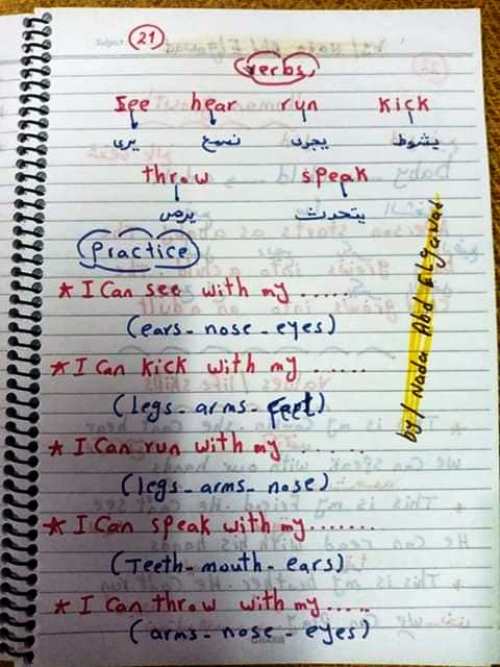 21
verbs
See hear run kick
يرى نسمع يجرى يشوط
throw speak
يرمى يتحدث
Practice
* I Can see with my .....
(ears - nose - eyes)
* I Can kick with my ......
(legs - arms - feet)
* I Can run with my ......
(legs - arms - nose)
* I Can speak with my.......
(Teeth - mouth - ears)
* I Can throw with my .....
(arms - nose - eyes)
by/ Nada Abd Elgawad